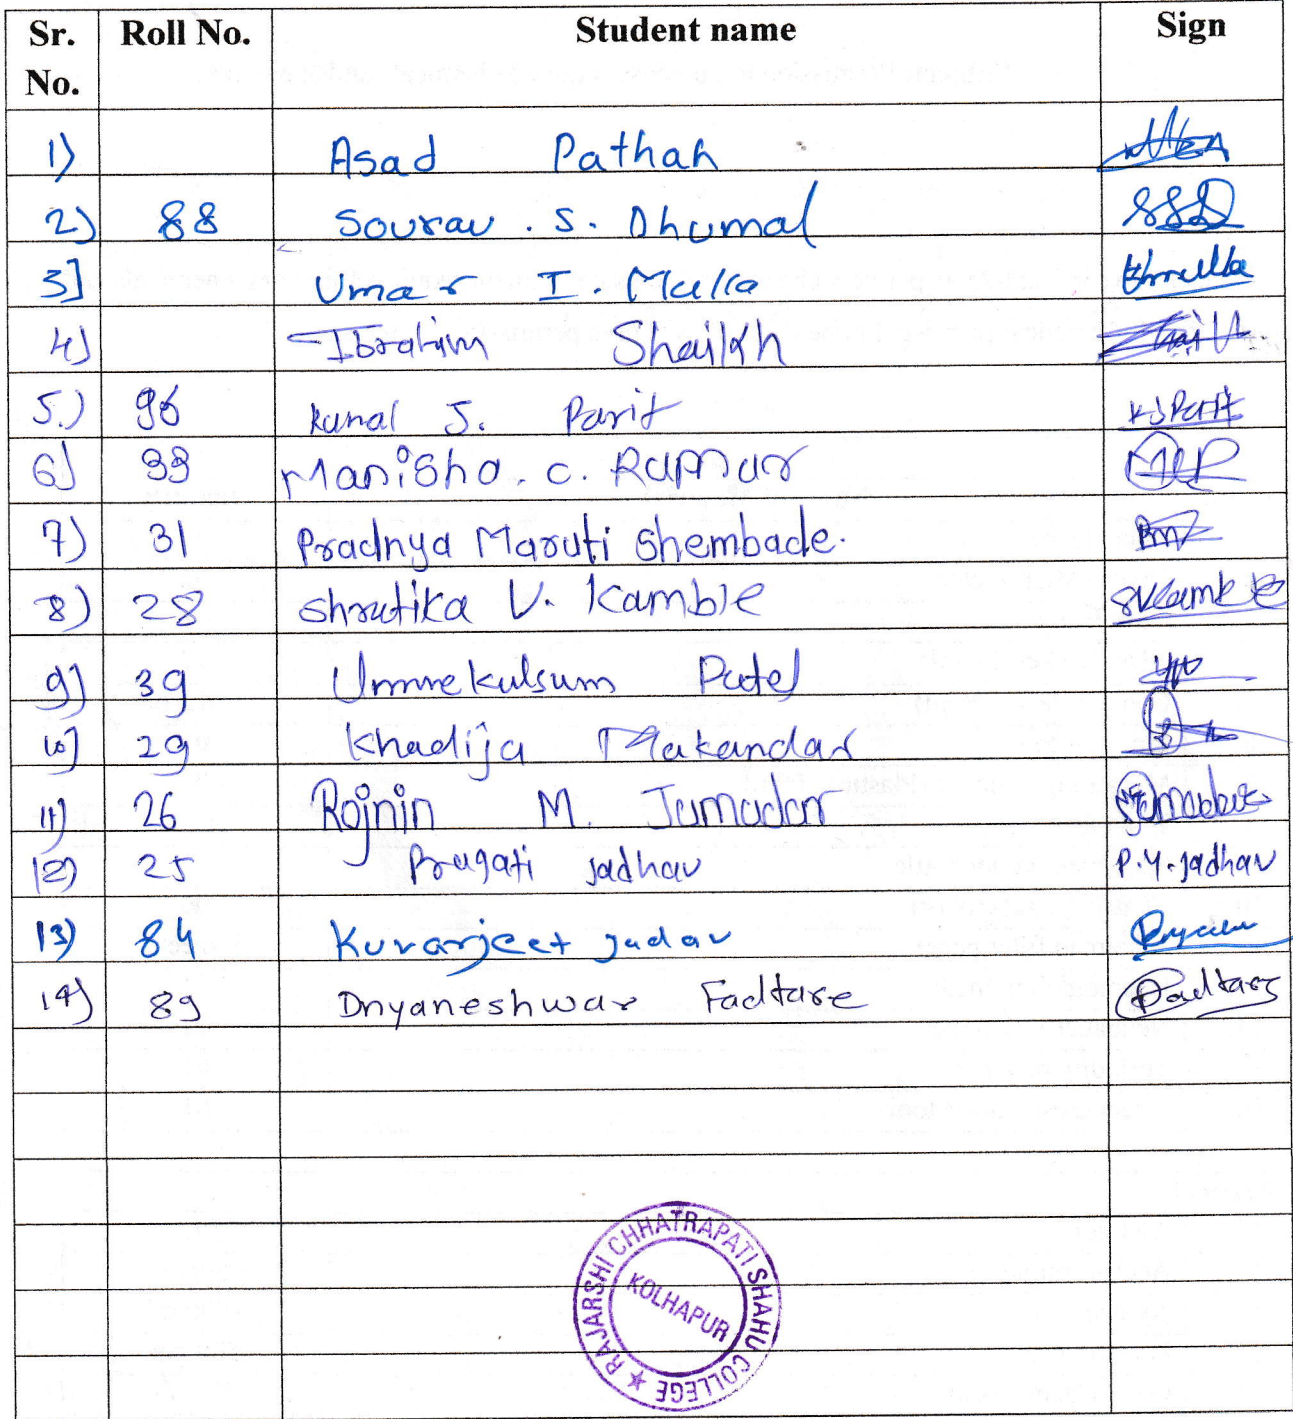 Sr. No. Roll No. Student name Sign
1) Asad Pathah
2) 88 Sourav . S. Dhumal SSD
3] Umar I. Mulla
4) Ibrahim Shaikh
5.) 96 Kunal J. Parit KJParit
6) 99 Manisha. C. Rumar
7) 31 Pradnya Maruti Shembade.
8) 28 Shrutika V. Kamble SVKamble
9) 39 Ummekulsum Patel
10] 29 Khadija Makandar
11) 26 Rojnin M. Jamadar
12) 25 Pragati Jadhav P.Y.Jadhav
13) 84 Kuvarjeet Jadav
14) 89 Dnyaneshwar Fadtare
RAJARSHI CHHATRAPATI SHAHU COLLEGE ★
KOLHAPUR